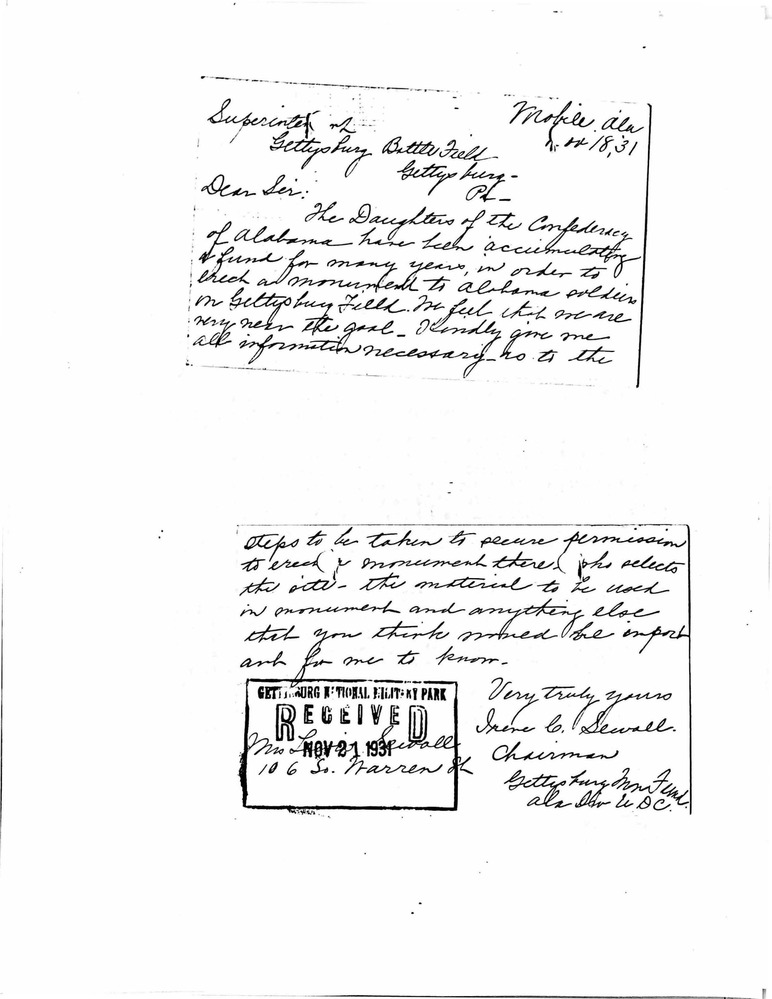 Mobile Ala
Nov 18, 31
Superintend nt
Gettysburg Battle Field
Gettysburg -
Pa -
Dear Sir:
The Daughters of the Confederacy
of Alabama have been accumulating
a fund for many years, in order to
erect a monument to Alabama soldiers
on Gettysburg Field. We feel that we are
very near the goal - Kindly give me
all information necessary - as to the
steps to be taken to secure permission
to erect a monument there, who selects
the site - the material to be used
in monument and anything else
that you think would be import
ant for me to know.
Very truly yours
Irene C. Sewall.
Chairman
Gettysburg Mon Fund.
Ala Div U D C.
GETTYSBURG NATIONAL MILITARY PARK
RECEIVED
NOV 21 1931
Mrs Sewall
106 So. Warren St